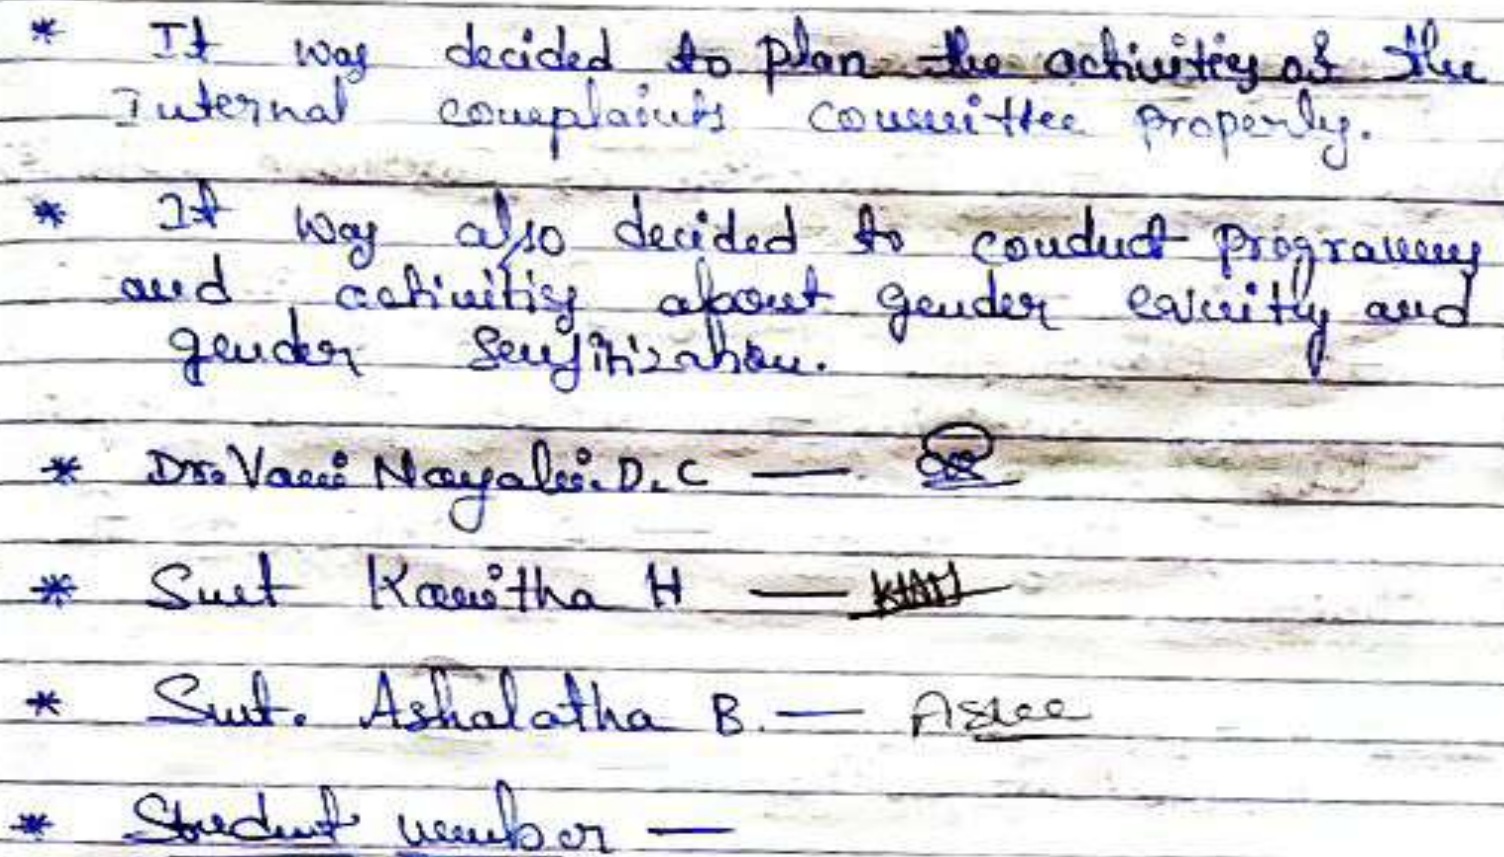 * It was decided to plan the activities of the
Internal complaints committee properly.
* It was also decided to conduct programms
and activities about gender equity and
gender sensitization.
* Dr. Vani Nayaki. D. C —
* Smt Kavitha H —
* Smt. Ashalatha B. —
* Student member —